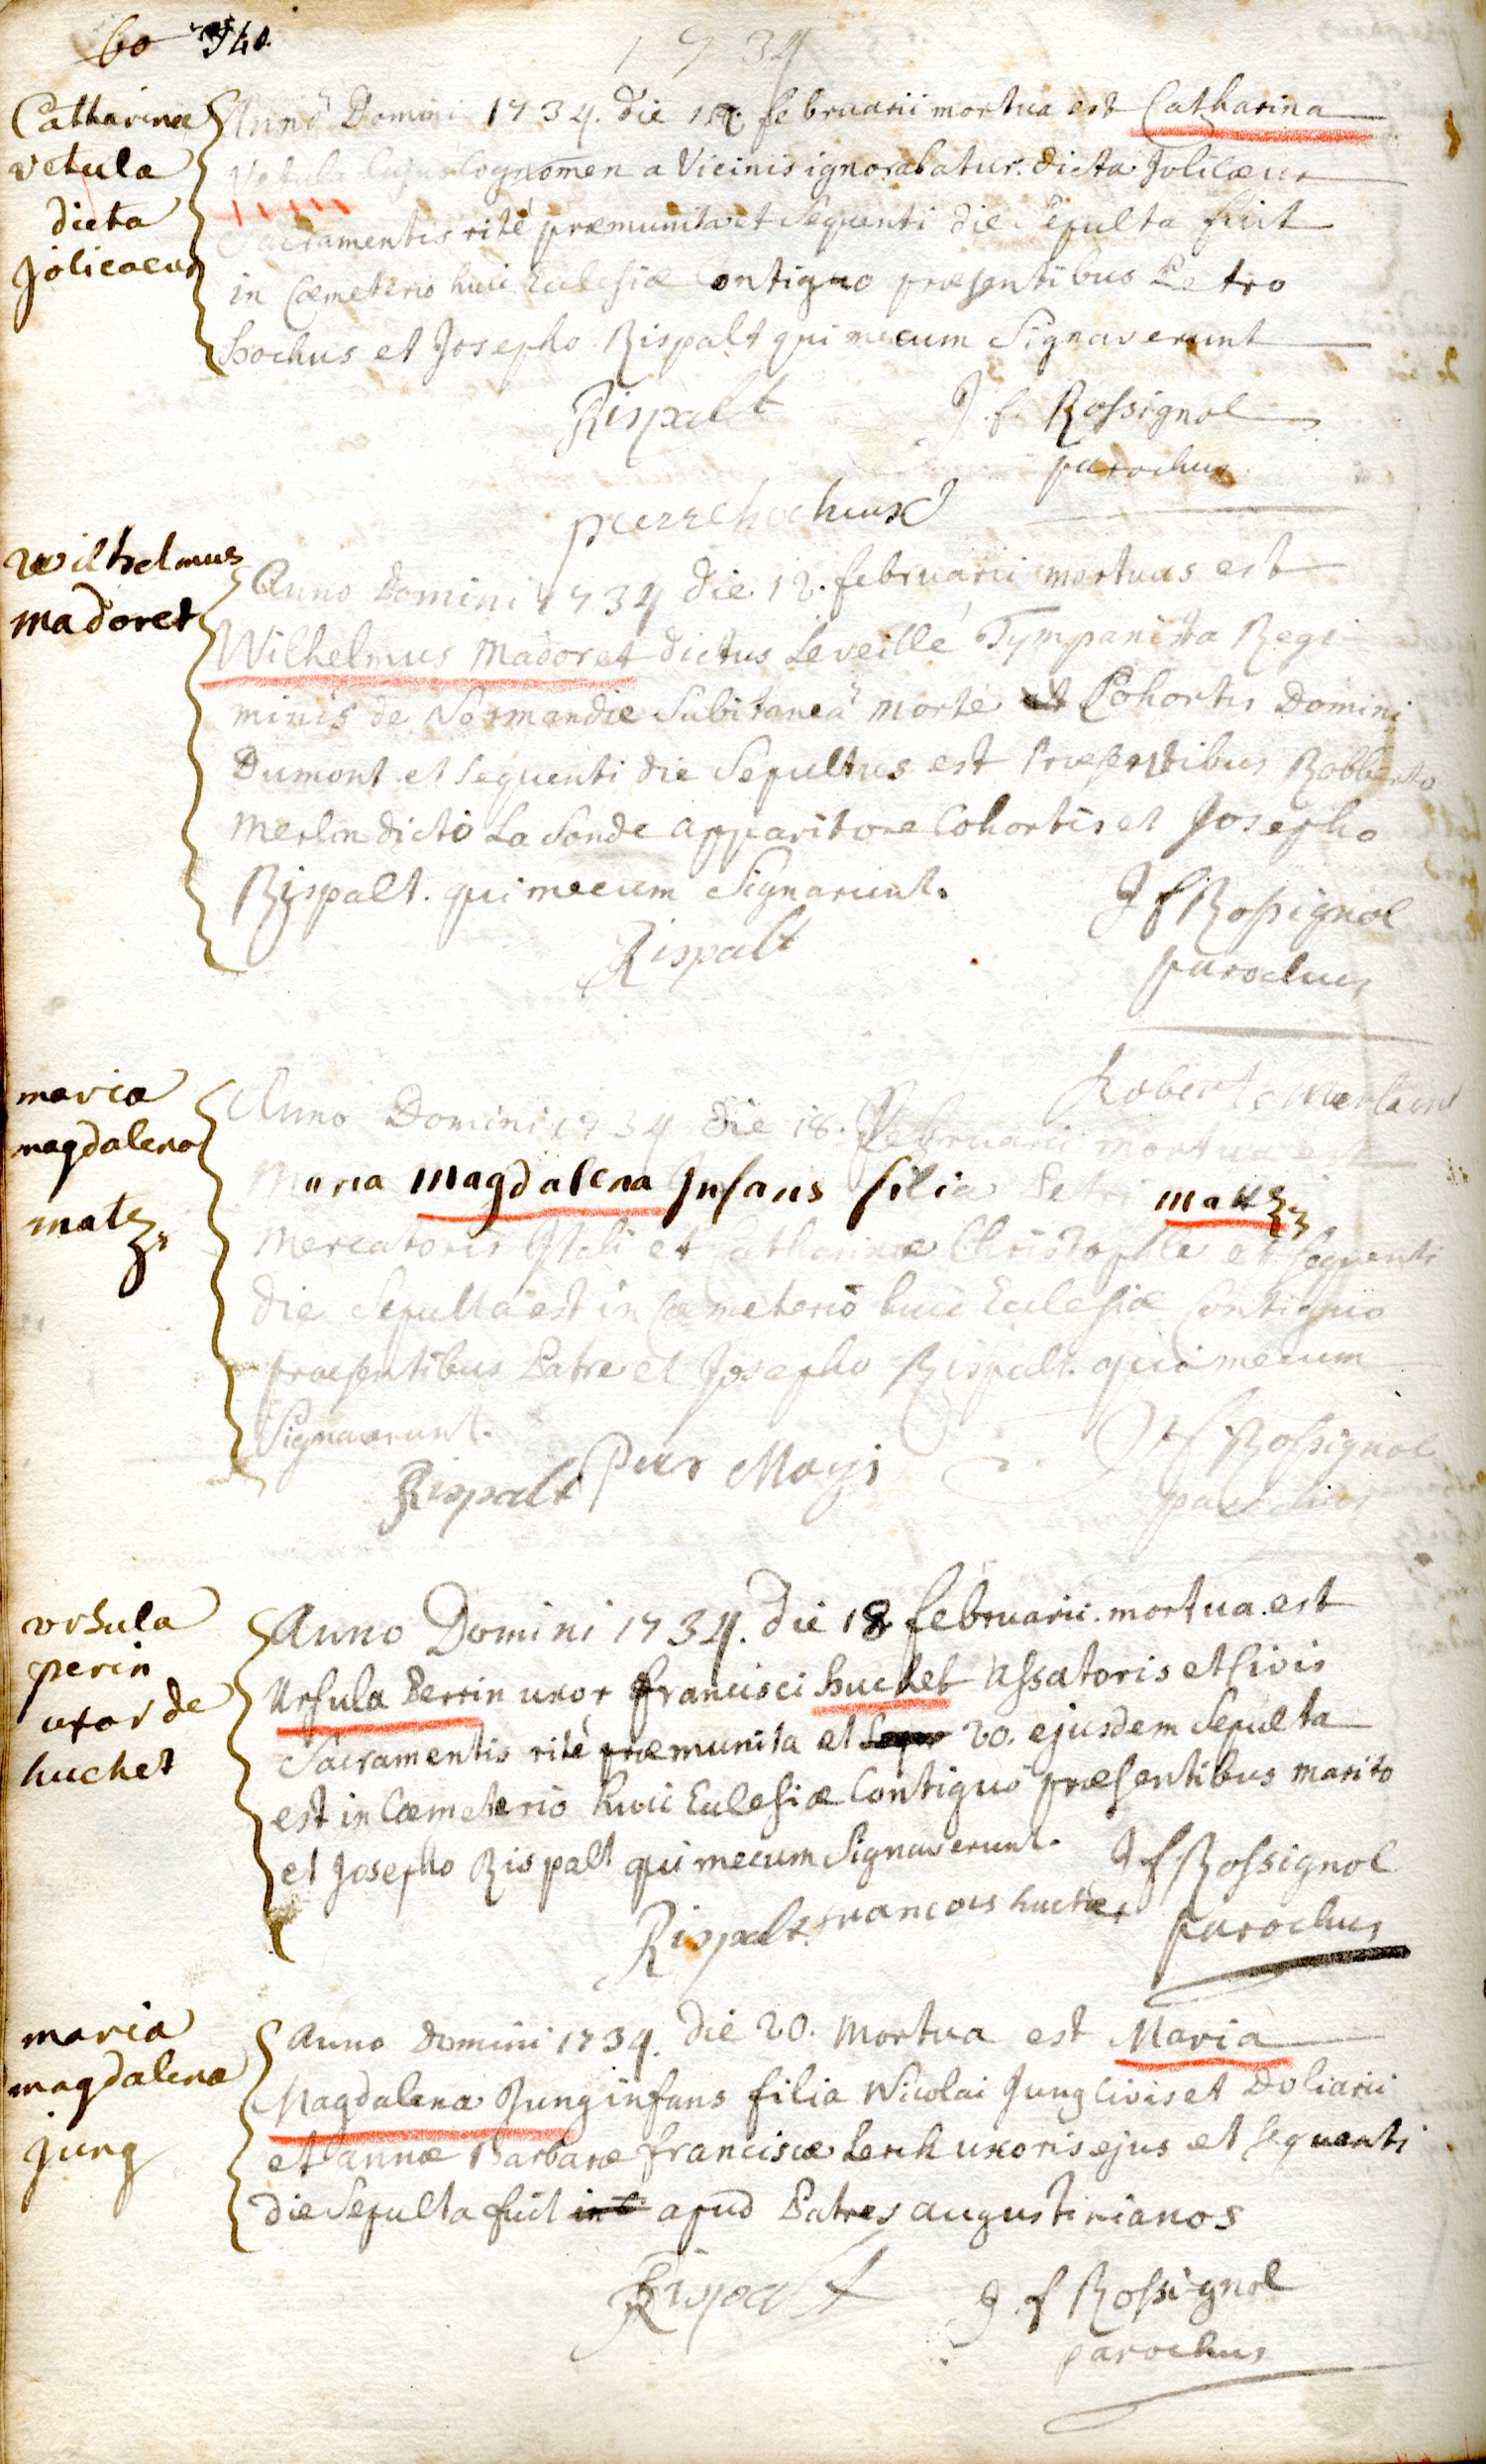 60 340.
1734
Catharina
vetula
dicta
jolicoeur
Anno Domini 1734. die februarii mortua est Catharina
Vetula Cujus Cognomen a Vicinis ignorabatur. dicta Jolicœur
Sacramentis rité præmunita et sequenti die Sepulta fuit
in Cœmeterio huic Ecclesiæ Contiguo præsentibus Petro
hochus et Josepho Rispalt qui mecum Signaverunt
Rispalt J. f. Rossignol
parochus
pierre hochus
Wilhelmus
madoret
Anno Domini 1734 die 12. februarii mortuus est
Wilhelmus Madoret dictus Leveillé Tympanista Regi
minis de Normandie Subitaneâ morte Cohortis Domini
Dumont et sequenti die Sepultus est Præsentibus Robberto
Merlin dicto La Sonde apparitore Cohortis et Josepho
Rispalt. qui mecum Signarunt.
Rispalt J f Rossignol
parochus
Robert
maria
magdalena
matz
Anno Domini 1734 die 18. Februarii mortua est
Maria Magdalena Infans filia Petri
Mercatoris et Catharinæ Christophle et sequenti
die Sepulta est in Cœmeterio huic Ecclesiæ Contiguo
præsentibus Patre et Josepho Rispalt. qui mecum
Signaverunt.
Rispalt J f Rossignol
parochus
vrsula
perin
uxor de
huchet
Anno Domini 1734. die 18 februarii. mortua. est
Ursula Perrin uxor francisci huchet Assatoris et Civis
Sacramentis rité præmunita et 20. ejusdem Sepulta
est in Cœmeterio huic Ecclesiæ Contiguo præsentibus marito
et Josepho Rispalt qui mecum Signaverunt.
Rispalt francois huchet J f Rossignol
parochus
maria
magdalena
jung
Anno Domini 1734. die 20. mortua est Maria
Magdalena Jung infans filia Nicolai Jung Civis et Doliarii
et annæ Barbaræ franciscæ Lerch uxoris ejus et sequenti
die Sepulta fuit apud Patres augustinianos
Rispalt J. f Rossignol
parochus